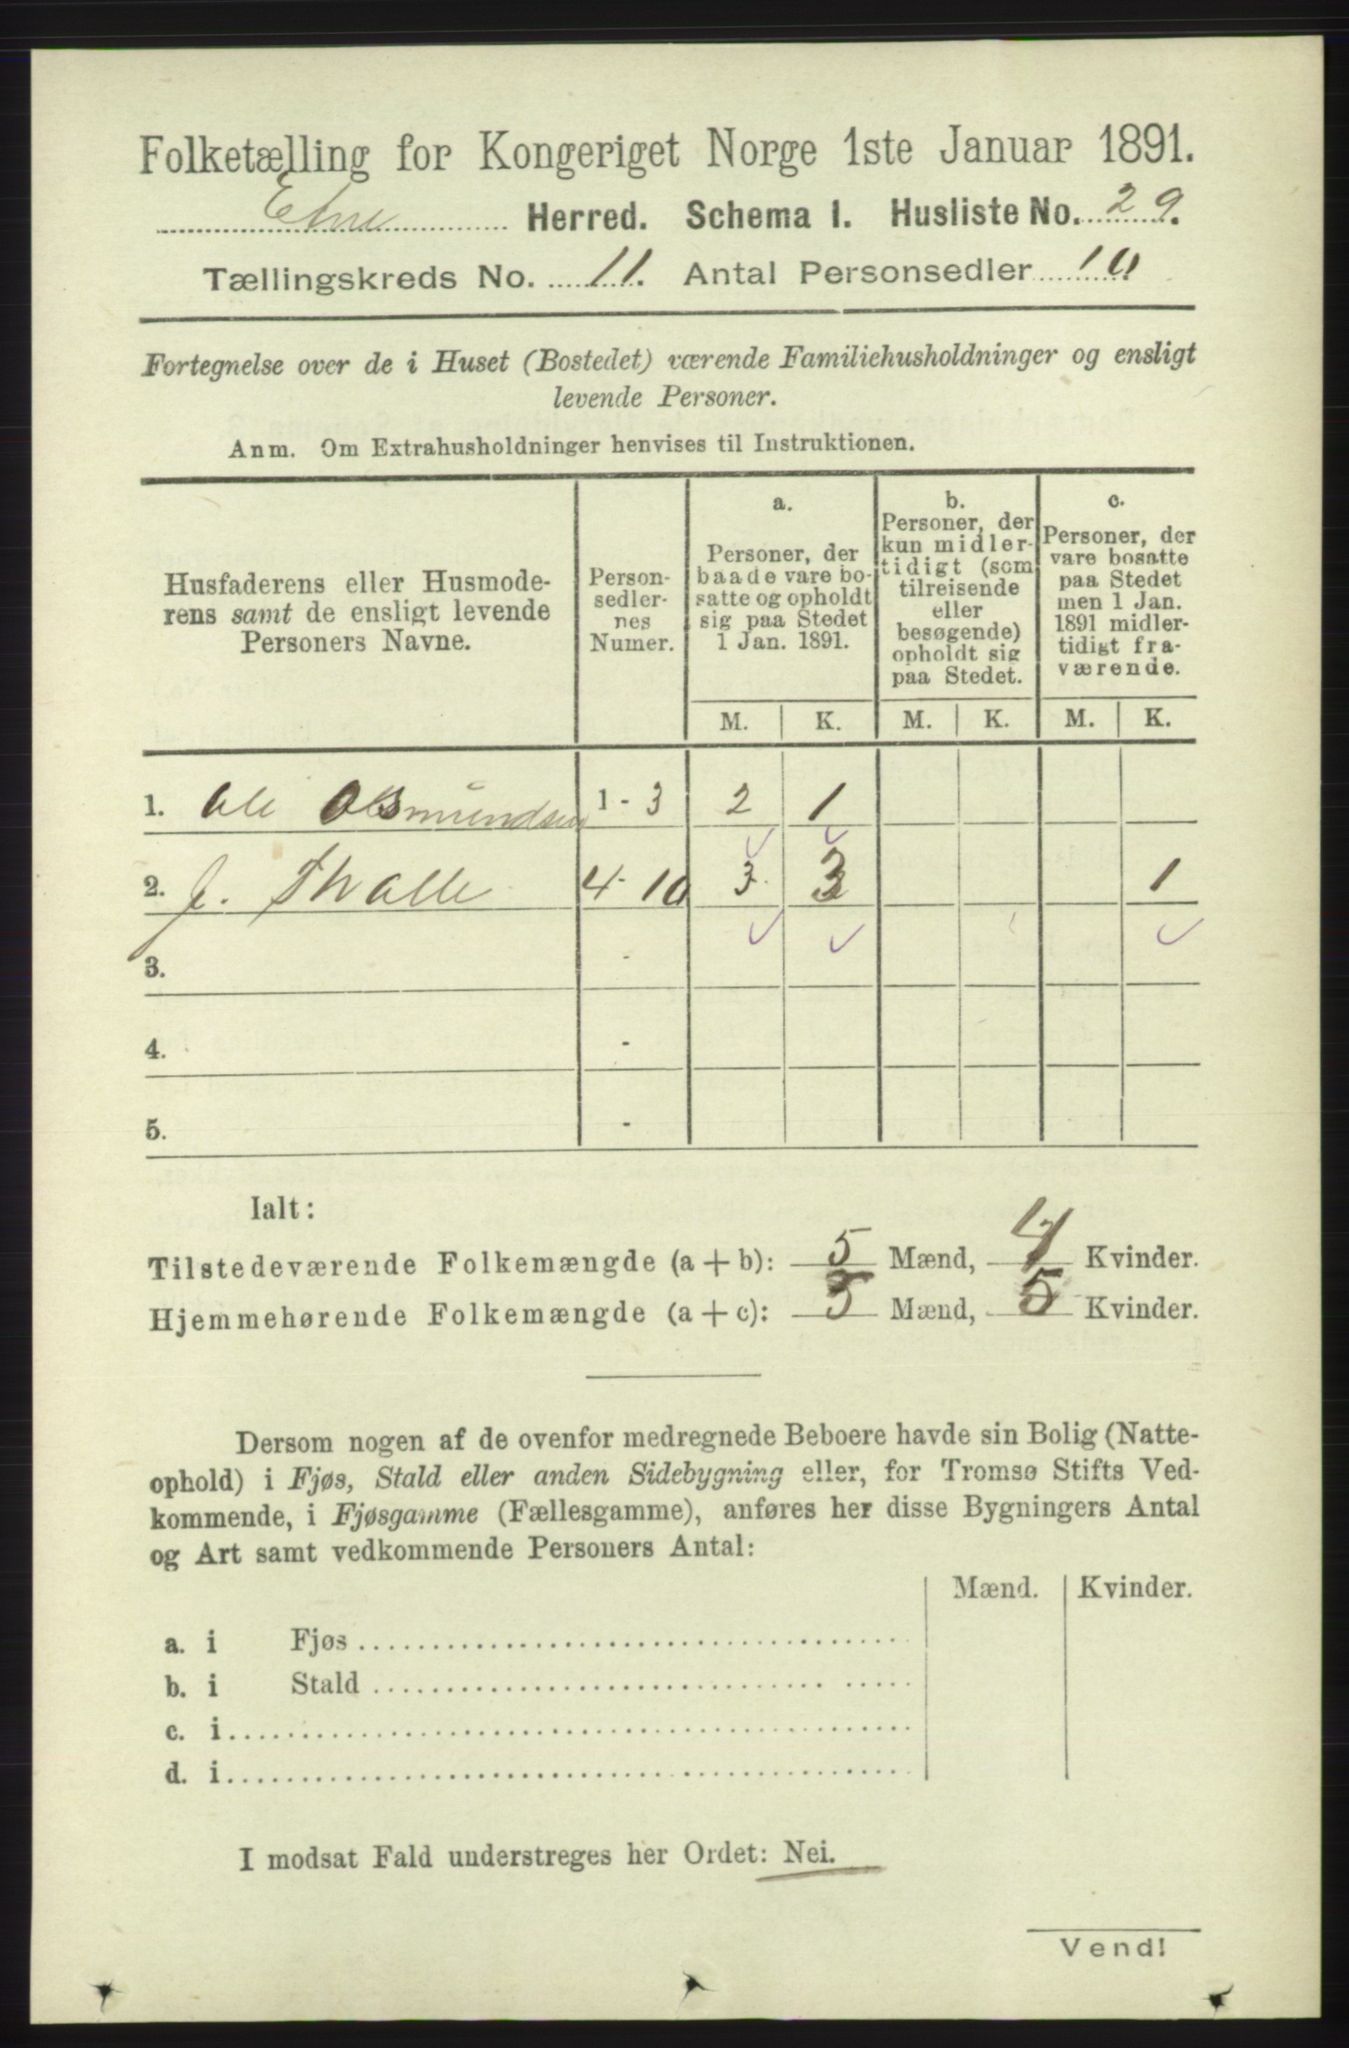 Folketælling for Kongeriget Norge 1ste Januar 1891.
Etne Herred. Schema I. Husliste No. 29.
Tællingskreds No. 11. Antal Personsedler 10
Fortegnelse over de i Huset (Bostedet) værende Familiehusholdninger og ensligt
levende Personer.
Anm. Om Extrahusholdninger henvises til Instruktionen.
Husfaderens eller Husmode-
rens samt de ensligt levende
Personers Navne.
Person-
sedler-
nes
Numer.
a.
Personer, der
baade vare bo-
satte og opholdt
sig paa Stedet
1 Jan. 1891.
b.
Personer, der
kun midler-
tidigt (som
tilreisende
eller
besøgende)
opholdt sig
paa Stedet.
c.
Personer, der
vare bosatte
paa Stedet
men 1 Jan.
1891 midler-
tidigt fra-
værende.
M. K. M. K. M. K.
1. Ole Aasmundsen 1 - 3 2 1
2. J. Thralle 4 - 10 3 3 1
3. -
4. -
5. -
Ialt:
Tilstedeværende Folkemængde (a + b): 5 Mænd, 4 Kvinder.
Hjemmehørende Folkemængde (a + c): 5 Mænd, 5 Kvinder.
Dersom nogen af de ovenfor medregnede Beboere havde sin Bolig (Natte-
ophold) i Fjøs, Stald eller anden Sidebygning eller, for Tromsø Stifts Ved-
kommende, i Fjøsgamme (Fællesgamme), anføres her disse Bygningers Antal
og Art samt vedkommende Personers Antal:
Mænd. Kvinder.
a. i Fjøs
b. i Stald
c. i
d. i
I modsat Fald understreges her Ordet: Nei.
Vend!